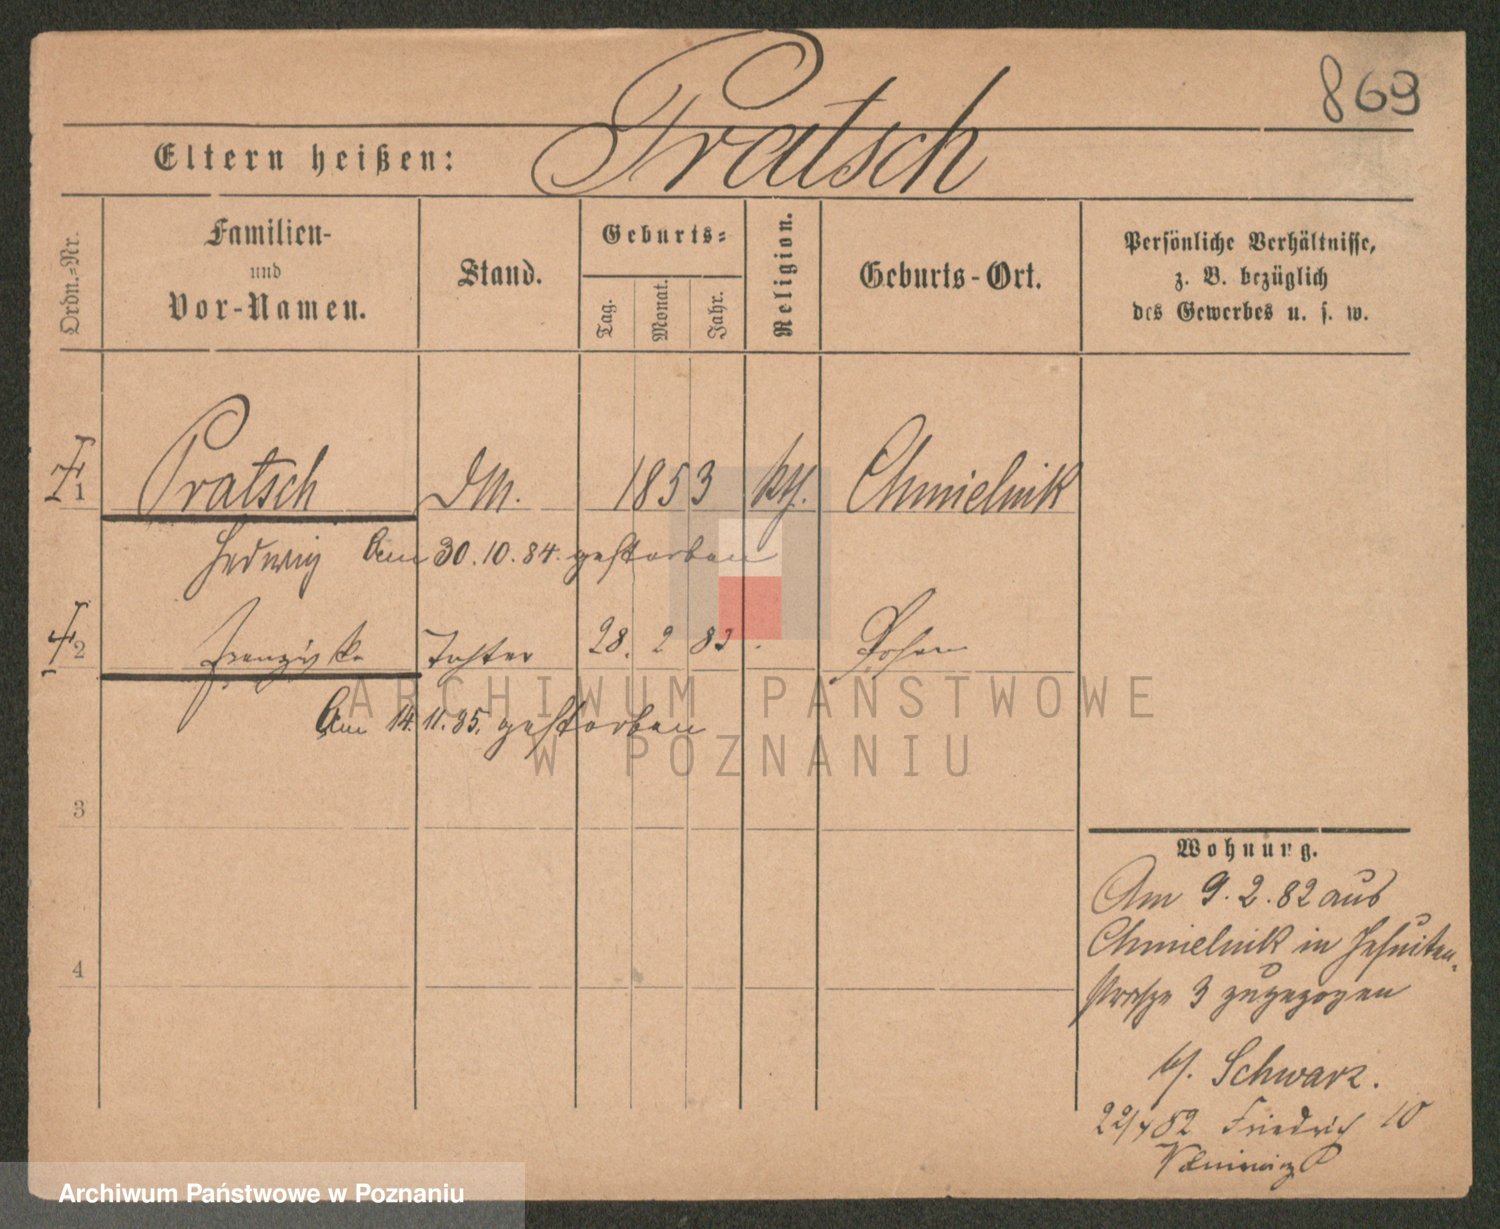 869
Pratsch
Eltern heißen:
Ordn.=Nr.
Familien-
und
Vor-Namen.
Stand.
Geburts=
Tag.
Monat.
Jahr.
Religion.
Geburts-Ort.
Persönliche Verhältnisse,
z. B. bezüglich
des Gewerbes u. s. w.
1 Pratsch DM. 1853 kth. Chmielnik
Hedwig Am 30.10.84. gestorben
2 Franziska Tochter 28. 2 83 Posen
Am 14.11.85. gestorben
3
4
Wohnung.
Am 9.2.82 aus
Chmielnik in Jesuiten-
strasze 3 zugezogen
b/. Schwarz.
22/4 82 Friedrich 10
ARCHIWUM PAŃSTWOWE
W POZNANIU
Archiwum Państwowe w Poznaniu